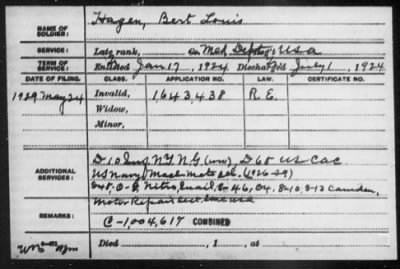 NAME OF SOLDIER: Hagen, Bert Louis
SERVICE: Late rank, Med. Dept U.S.A
TERM OF SERVICE: Enlisted Jan 17, 1924 Discharged July 1, 1924
DATE OF FILING. CLASS. APPLICATION NO. LAW. CERTIFICATE NO.
1929 May 24 Invalid, 1,643,438 R.E.
Widow,
Minor,
D 10 N.Y. N.G. (ww), D 68 US CAC.
ADDITIONAL SERVICES: US Navy (1926-29)
Nitro, 
Motor Repair
REMARKS: C-1,004,617 COMBINED
Died , 1 , at